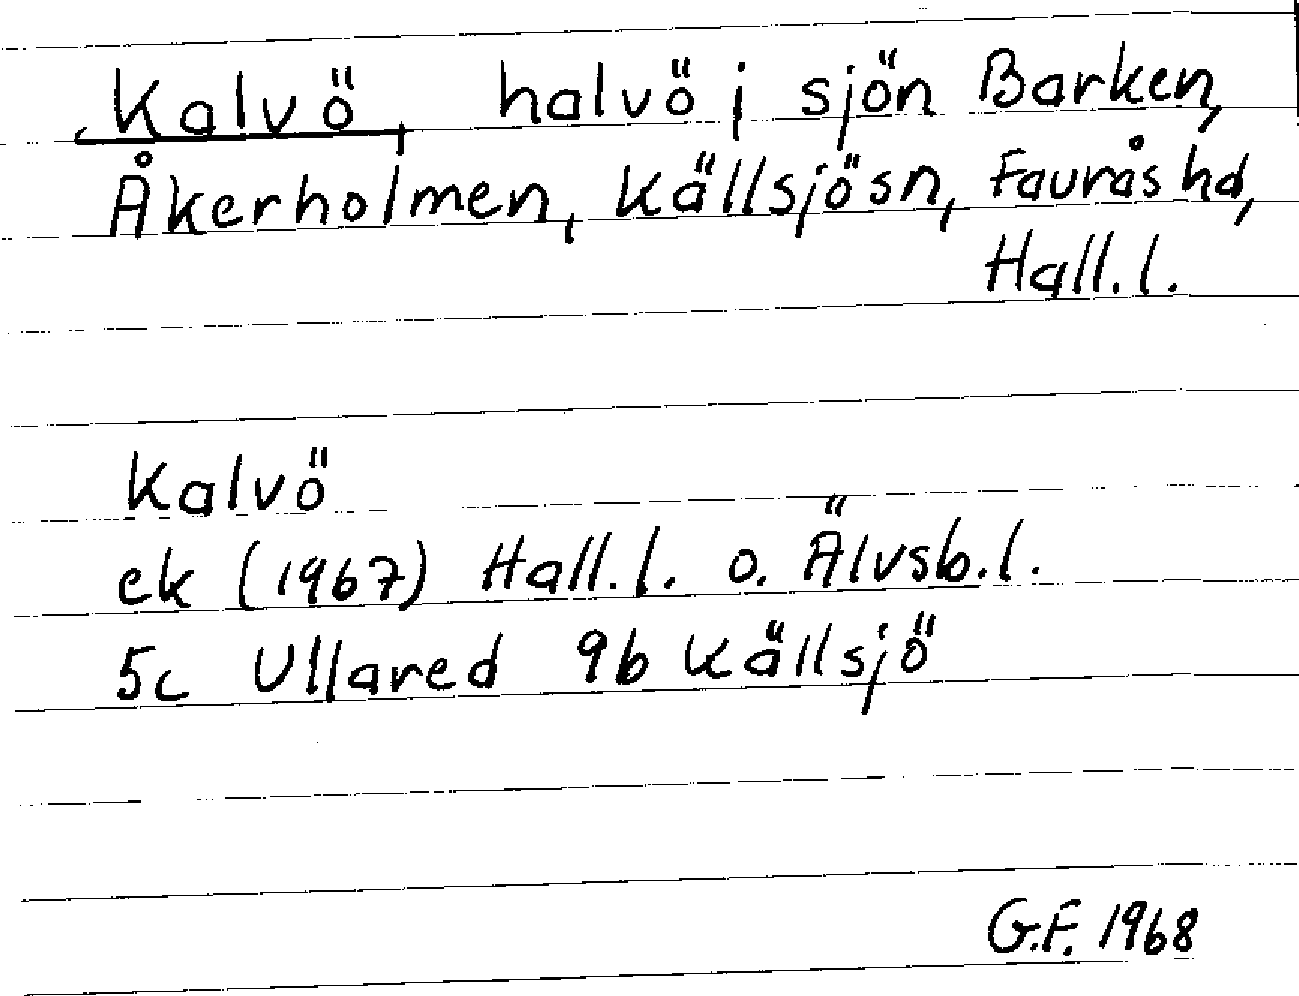 Kalvö, halvö i sjön Barken,
Åkerholmen, Källsjösn, Faurås hd,
Hall.l.
Kalvö
ek (1967) Hall.l. o. Älvsb.l.
5c Ullared 9b Källsjö
G.F. 1968